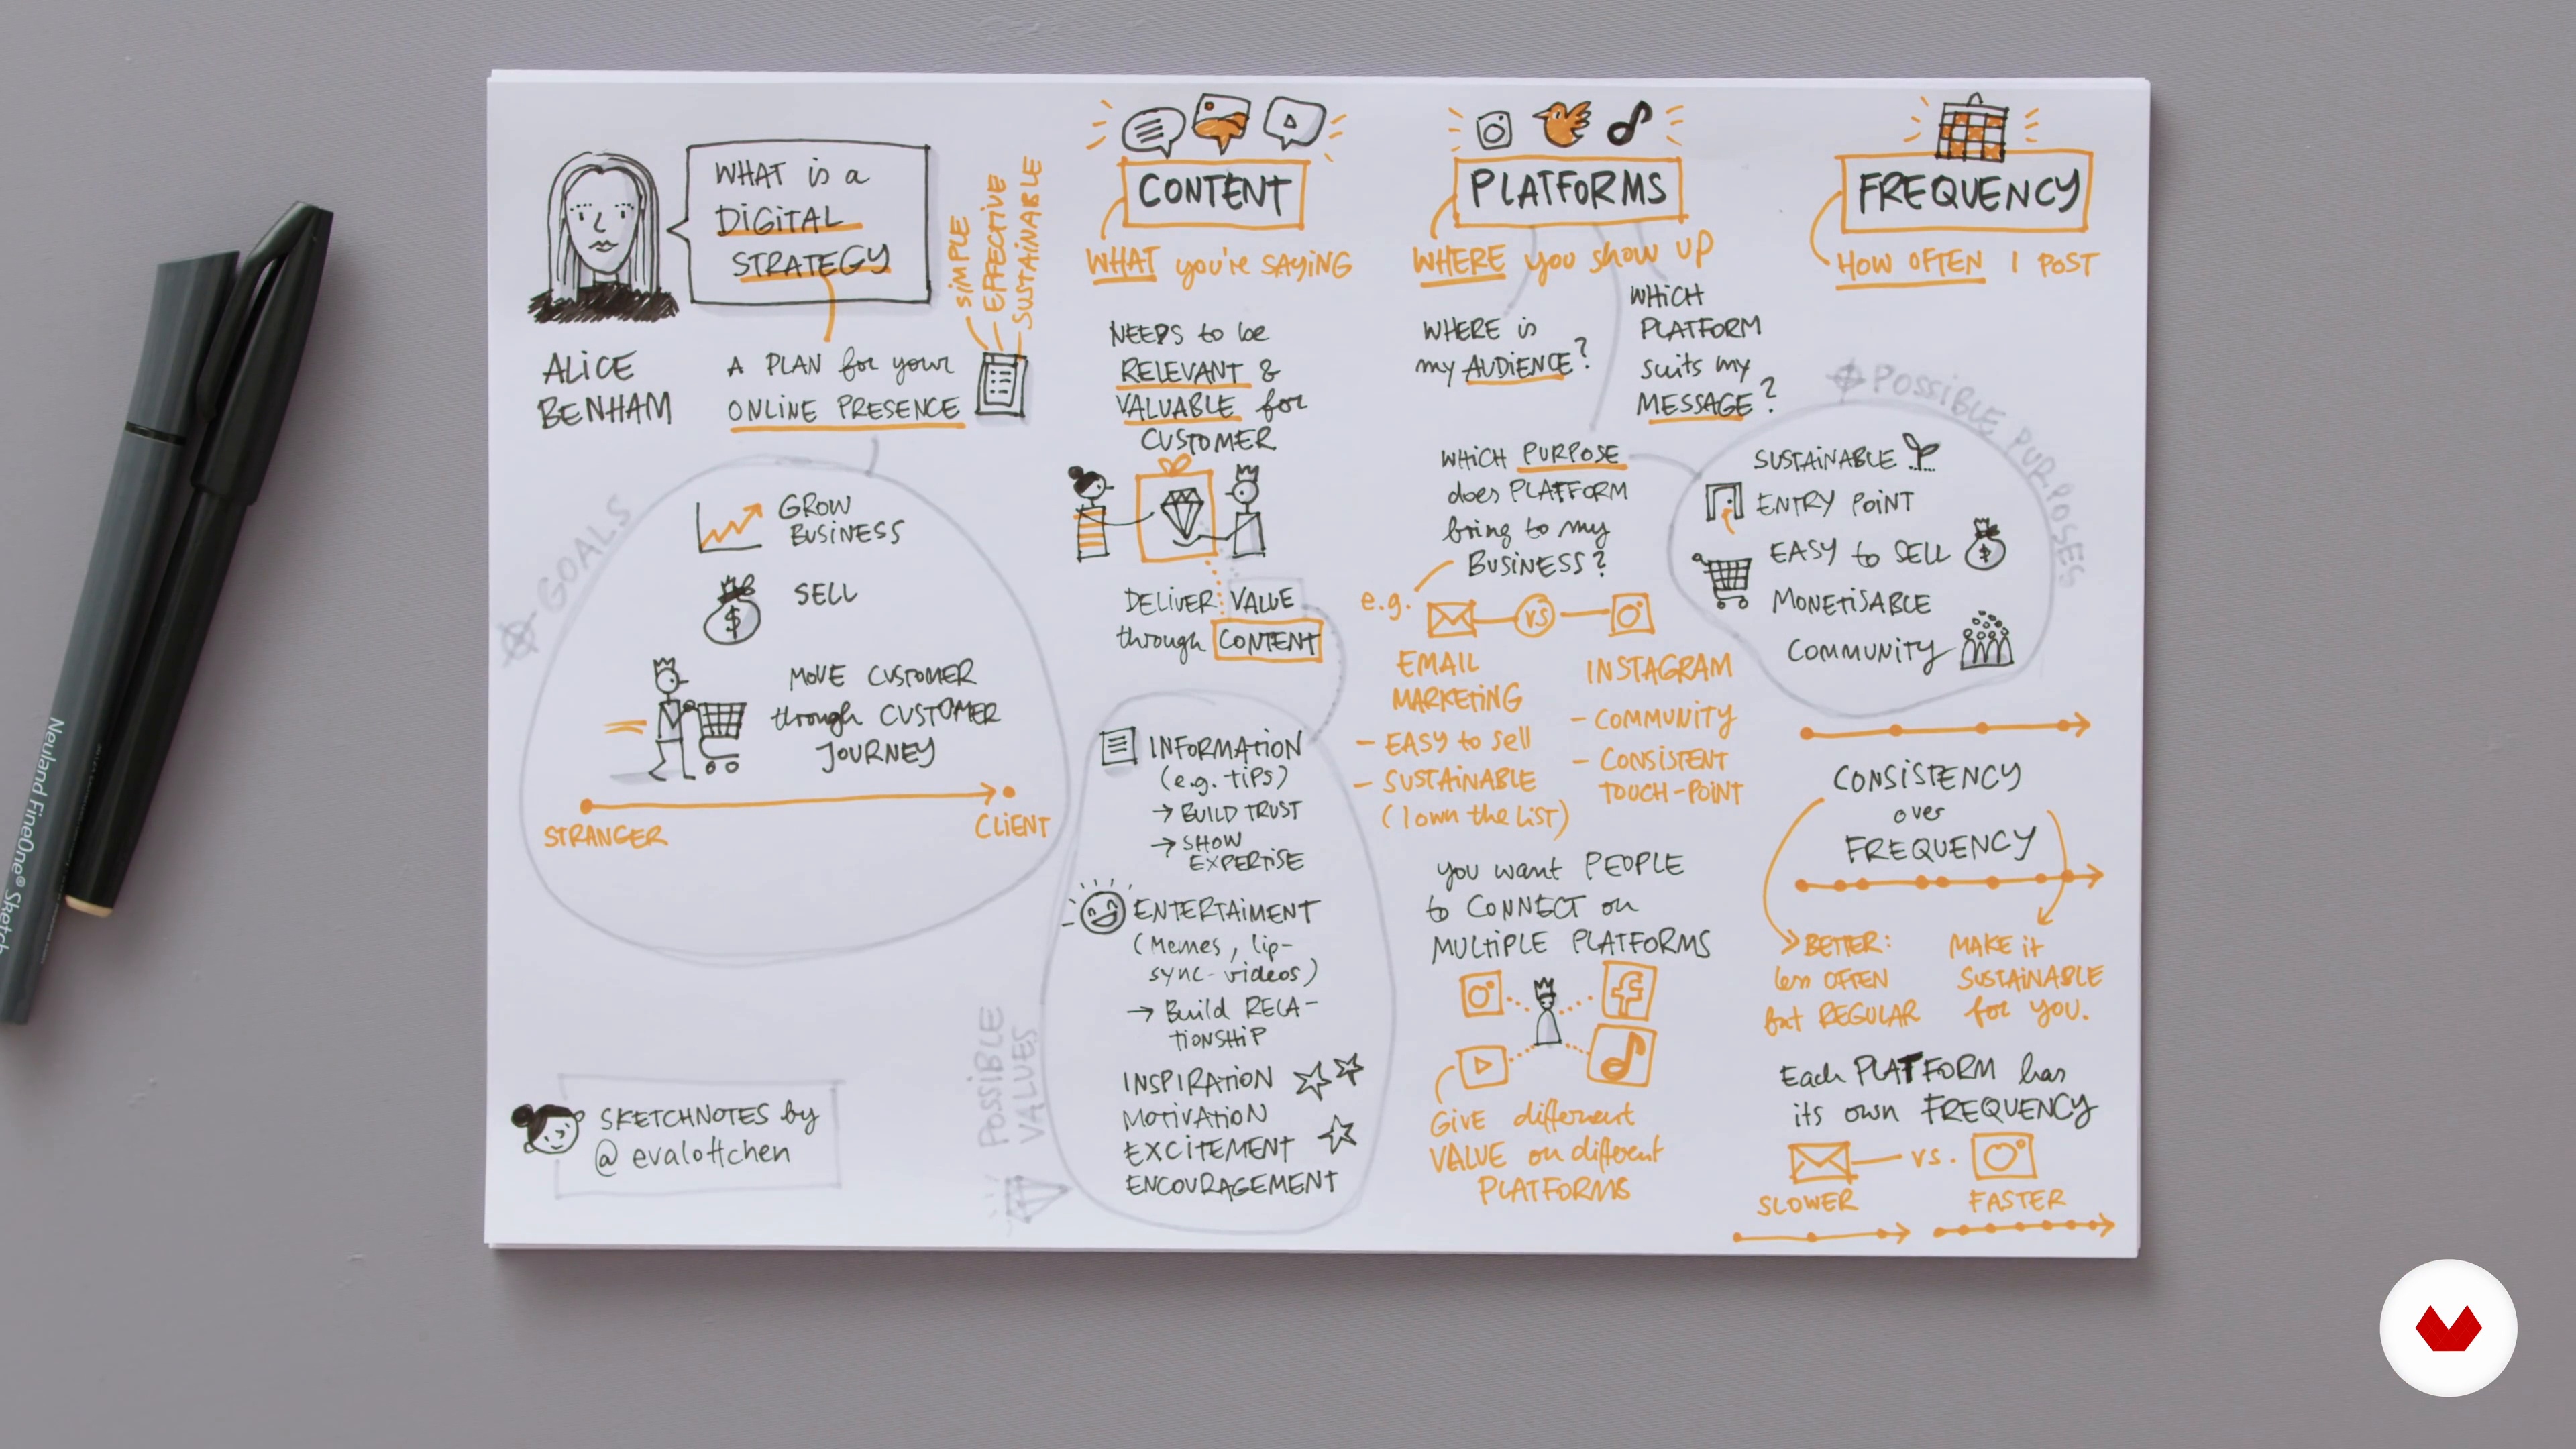 WHAT is a
DIGITAL
STRATEGY
SIMPLE
EFFECTIVE
SUSTAINABLE
ALICE
BENHAM
A PLAN for your
ONLINE PRESENCE
GOALS
GROW
BUSINESS
SELL
$
MOVE CUSTOMER
through CUSTOMER
JOURNEY
STRANGER
CLIENT
SKETCHNOTES by
@evalottchen
CONTENT
WHAT you're SAYING
NEEDS to be
RELEVANT &
VALUABLE for
CUSTOMER
DELIVER VALUE
through CONTENT
POSSIBLE
VALUES
INFORMATION
(e.g. TIPS)
→ BUILD TRUST
→ SHOW
EXPERTISE
ENTERTAIMENT
(Memes, lip-
sync-videos)
→ Build RELA-
TIONSHIP
INSPIRATION
MOTIVATION
EXCITEMENT
ENCOURAGEMENT
PLATFORMS
WHERE you show up
WHERE is
my AUDIENCE?
WHICH
PLATFORM
suits my
MESSAGE?
WHICH PURPOSE
does PLATFORM
bring to my
BUSINESS?
POSSIBLE PURPOSES
SUSTAINABLE
ENTRY POINT
EASY to SELL
$
MONETISABLE
COMMUNITY
e.g.
VS
EMAIL
MARKETING
- EASY to sell
- SUSTAINABLE
(I own the LIST)
INSTAGRAM
- COMMUNITY
- CONSISTENT
TOUCH-POINT
you want PEOPLE
to CONNECT on
MULTIPLE PLATFORMS
GIVE different
VALUE on different
PLATFORMS
FREQUENCY
HOW OFTEN I POST
CONSISTENCY
over
FREQUENCY
BETTER:
less OFTEN
but REGULAR
MAKE it
SUSTAINABLE
for YOU.
Each PLATFORM has
its own FREQUENCY
vs.
SLOWER
FASTER
Neuland FineOne® Sketch